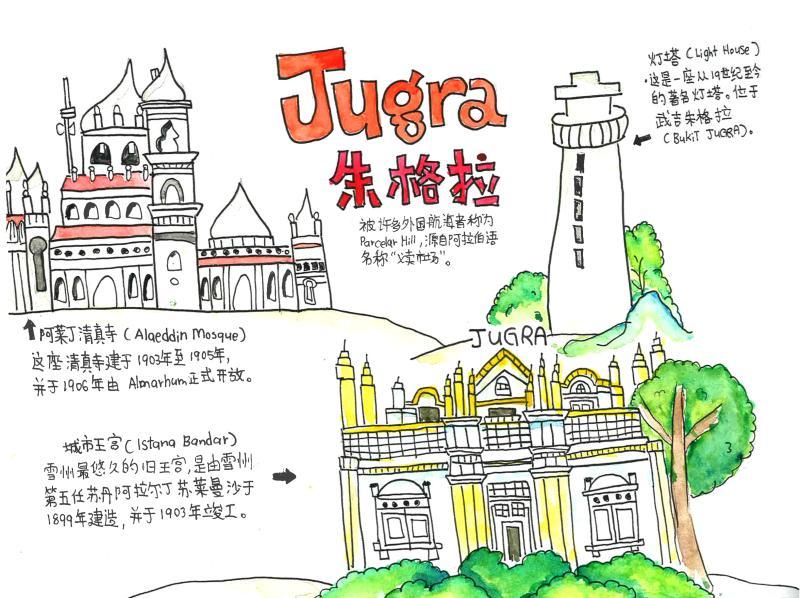 Jugra
朱格拉
被许多外国航海者称为
Parcelar Hill, 源自阿拉伯语
名称“义卖市场”。
灯塔 (Light House)
这是一座从19世纪至今
的著名灯塔。位于
武吉朱格拉
(BUKIT JUGRA)。
阿莱丁清真寺 (Alaeddin Mosque)
这座清真寺建于1903年至1905年,
并于1906年由 Almarhum正式开放。
JUGRA
城市王宫 (Istana Bandar)
雪州最悠久的旧王宫,是由雪州
第五任苏丹阿拉尔丁苏莱曼沙于
1899年建造,并于1903年竣工。